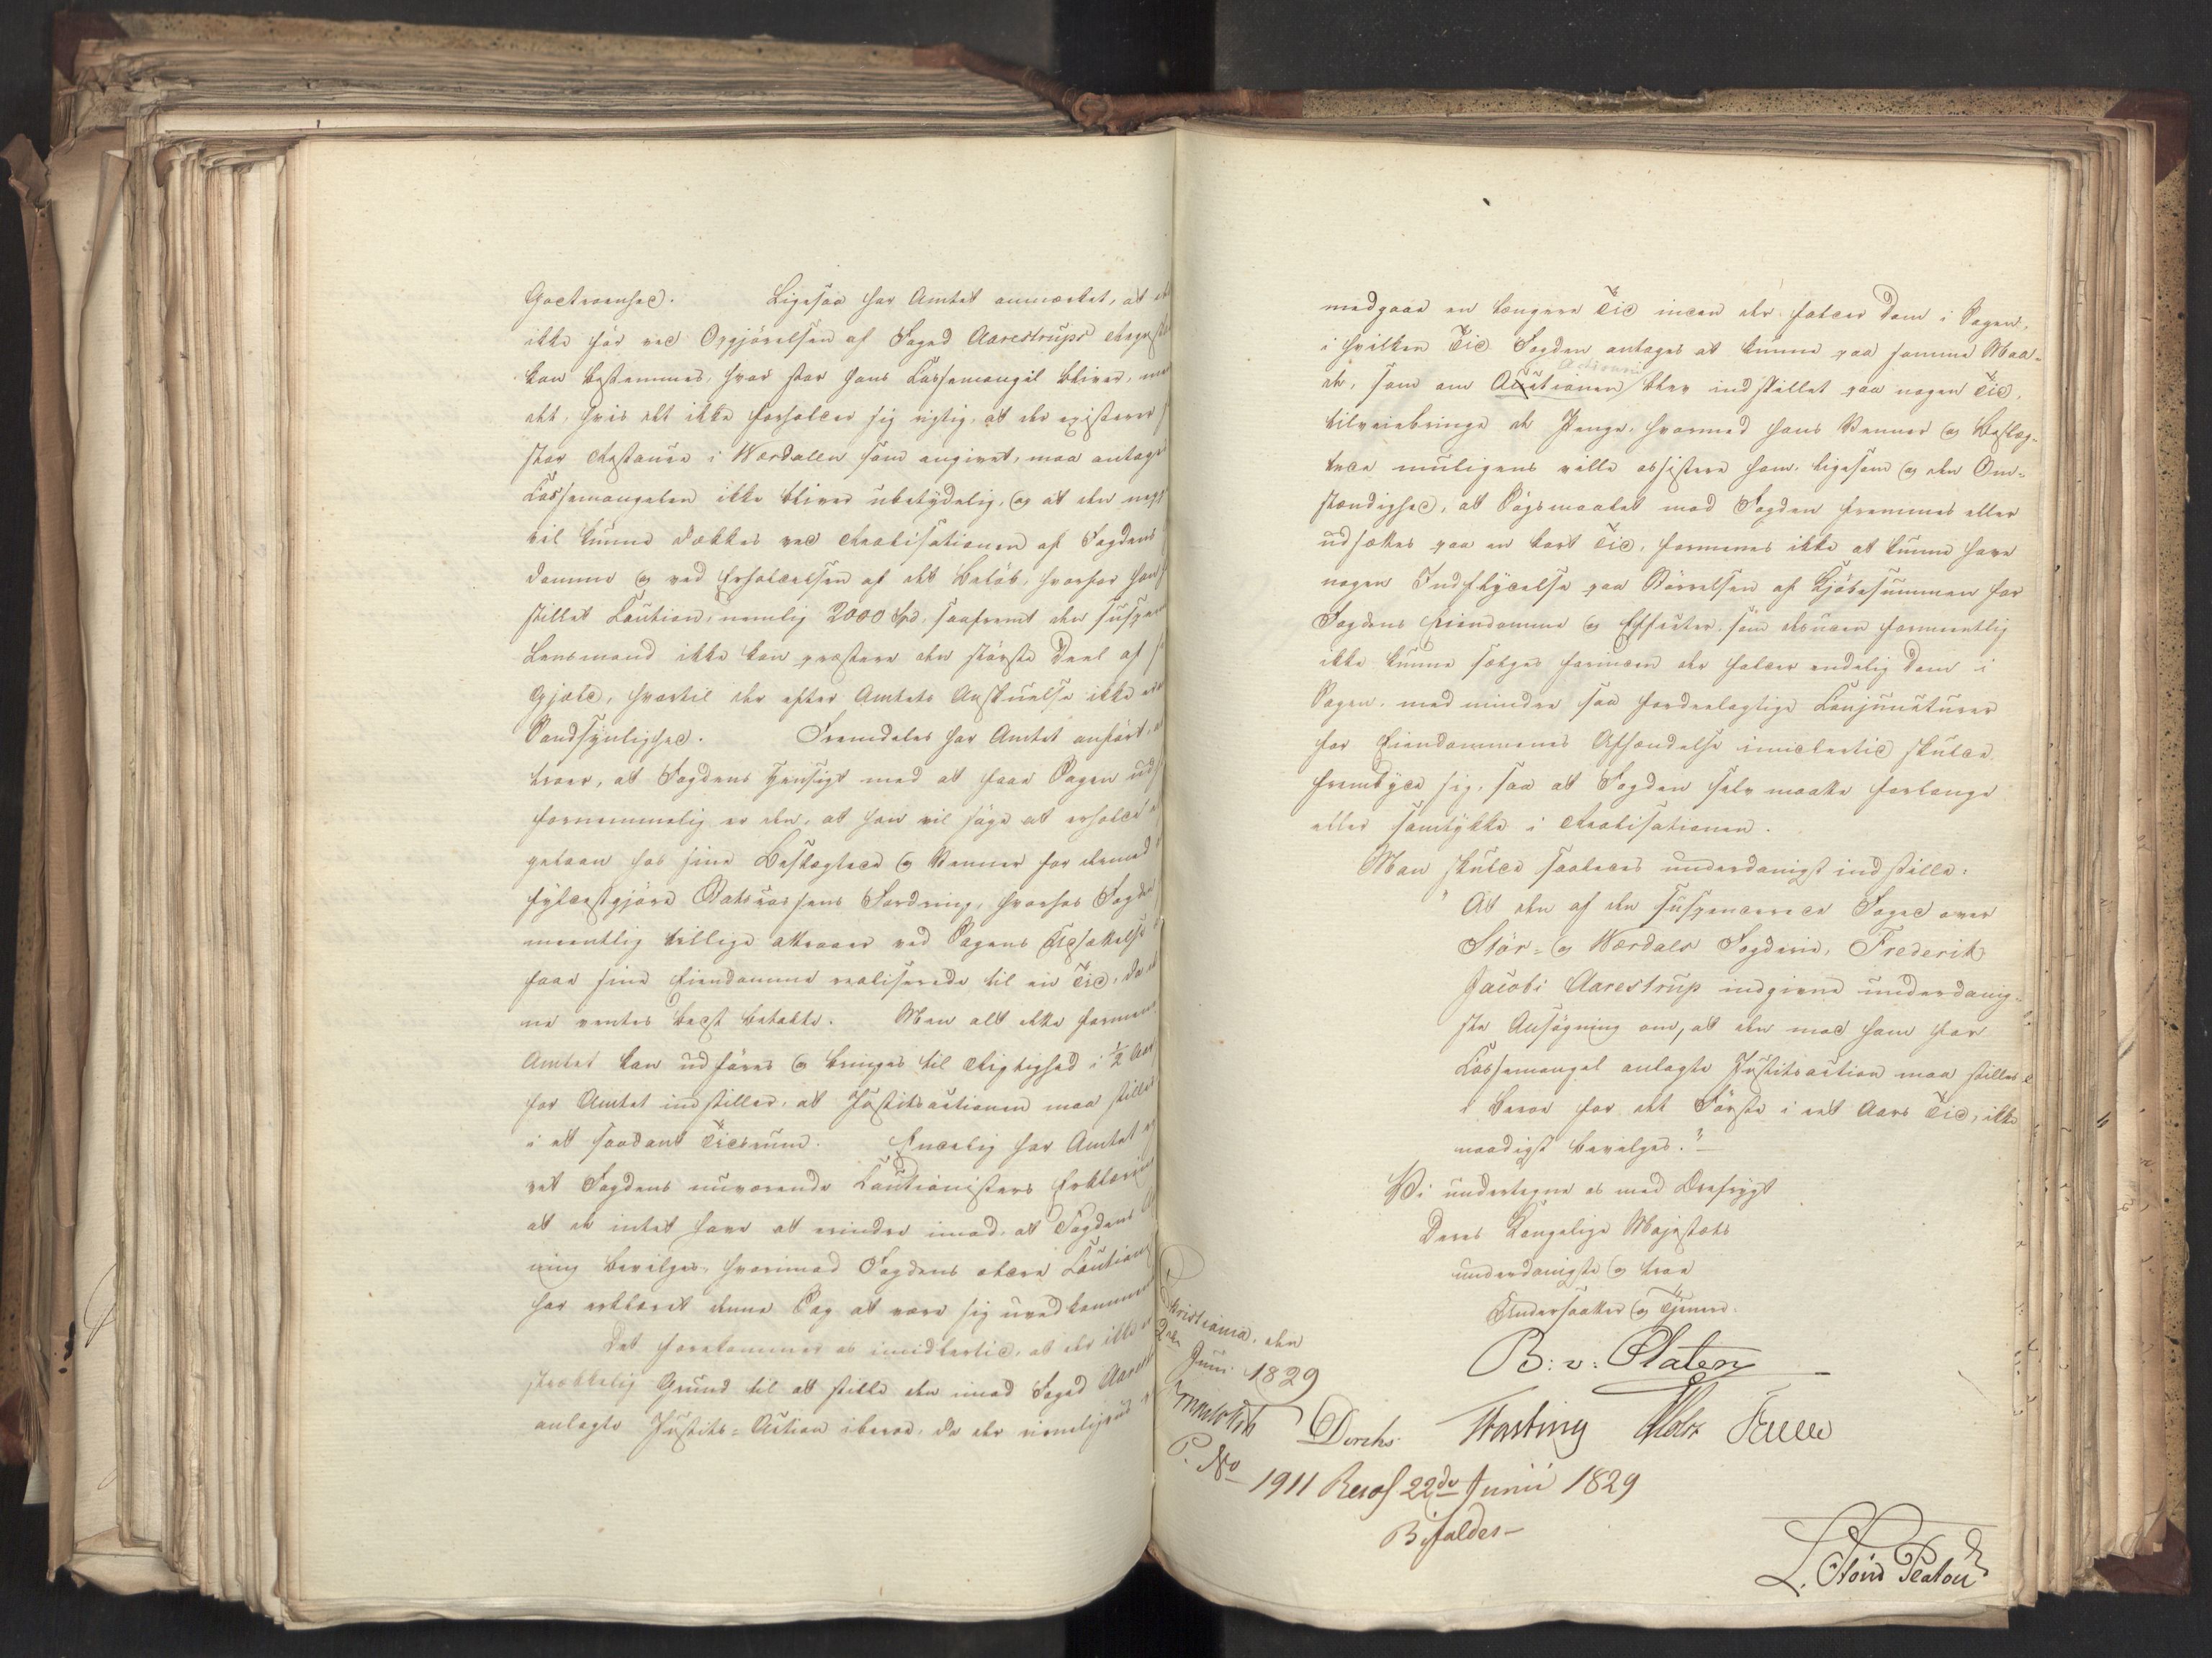 Godtroenhed. Ligesaa har Amtet anmærket, at
ikke før ved Opgjørelsen af Foged Aarestrups Regnsk
kan bestemmes, hvor stor hans Cassemangel bliver, men
det, hvis det ikke forholder sig rigtig, at der existerer
stor Restance i Værdalen som angivet, maa antages
Cassemangelen ikke bliver ubetydelig, og at den neppe
vil kunne dækkes ved Realisationen af Fogdens
domme og ved Erholdelsen af det Beløb, hvorfor han
stillet Caution, nemlig 2000 Spd, saafremt den suspen
Lensmand ikke kan præstere den største Deel af
Gjæld, hvortil der efter Amtets Anskuelse ikke er
Sandsynlighed. Fremdeles har Amtet anført,
troer, at Fogdens Hensigt med at faae Sagen ud
fornemmelig er den, at han vil søge at erholde
gelaan hos sine Beslægtede og Venner for dermed
fyldestgjøre Statscassens Fordring, hvorhos Fogden
meentlig tillige attraaer ved Sagens Udsættelse
faae sine Eiendomme realiserede til en Tid, da
ne ventes bedst betalte. Men alt dette formener
Amtet kan udføres og bringes til Rigtighed i ½ Aar
for Amtet indstiller, at Justitsactionen maa stilles
i et saadant Tidsrum. Endelig har Amtet
vet Fogdens nuværende Cautionisters Erklæring
at de intet have at erindre imod, at Fogdens
ning bevilges, hvorimod Fogdens ældre Caution
har erklæret denne Sag at være sig uvedkommen
Det forekommer os imidlertid, at der ikke er
strækkelig Grund til at stille den imod Foged Aarest
anlagte Justits-Action iberoe, da der rimeligviis
medgaae en længere Tid inden der falder Dom i Sagen,
i hvilken Tid Fogden antages at kunne paa samme Maa-
de, som om Auctionen Actionen blev indstillet paa nogen Tid,
tilveiebringe de Penge, hvormed hans Venner og Beslæg-
tede muligens ville assistere ham, ligesom og den Om-
stændighed, at Søgsmaalet mod Fogden fremmes eller
udsættes paa en kort Tid, formenes ikke at kunne have
nogen Indflydelse paa Størrelsen af Kjøbesummen for
Fogdens Eiendomme og Effecter, som desuden formeentlig
ikke kunne sælges forinden der falder endelig Dom i
Sagen, med mindre saa fordeelagtige Conjuncturer
for Eiendommenes Afhændelse imidlertid skulde
frembyde sig, saa at Fogden selv maatte forlange
eller samtykke i Realisationen.
Man skulde saaledes underdanigst indstille:
"At den af den suspenderede Foged over
Stør- og Værdals Fogderie, Frederik
Jacobi Aarestrup indgivne underdanig-
ste Ansøgning om, at den mod ham for
Cassemangel anlagte Justitsaction maa stilles
i Beroe for det Første i eet Aars Tid, ikke
naadigst bevilges."
Vi undertegne os med Ærefrygt
Deres Kongelige Majestæts
underdanigste og troe
Undersaatter og Tjenere.
Christiania, den
2den Juni 1829
B: v: Platen
Diriks Fasting Holst
P. No 1911 Resol 22de Junii 1829
Bifaldes –